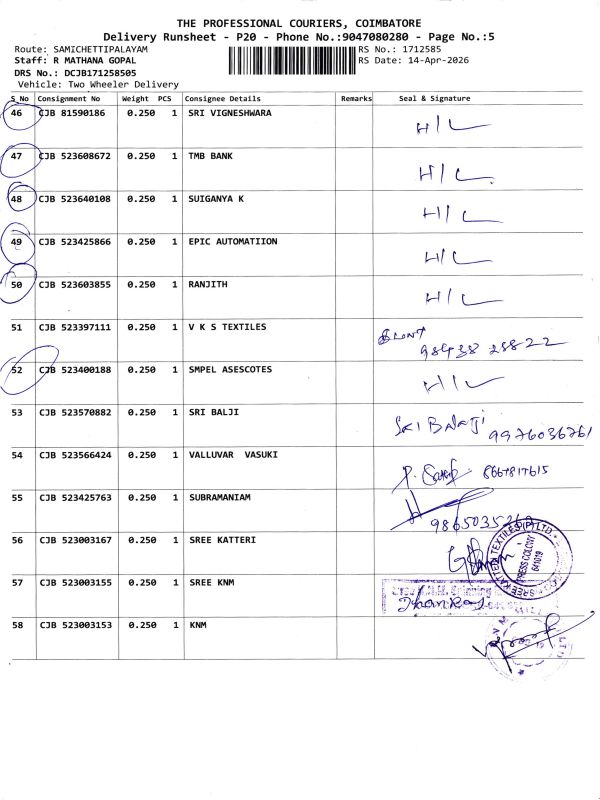 THE PROFESSIONAL COURIERS, COIMBATORE
Delivery Runsheet - P20 - Phone No.:9047080280 - Page No.:5
Route: SAMICHETTIPALAYAM RS No.: 1712585
Staff: R MATHANA GOPAL RS Date: 14-Apr-2026
DRS No.: DCJB171258505
Vehicle: Two Wheeler Delivery
S_No Consignment No Weight PCS Consignee Details Remarks Seal & Signature
46 CJB 81590186 0.250 1 SRI VIGNESHWARA H/L
47 CJB 523608672 0.250 1 TMB BANK H/L
48 CJB 523640108 0.250 1 SUIGANYA K H/L
49 CJB 523425866 0.250 1 EPIC AUTOMATIION H/L
50 CJB 523603855 0.250 1 RANJITH H/L
51 CJB 523397111 0.250 1 V K S TEXTILES
98438 28822
52 CJB 523400188 0.250 1 SMPEL ASESCOTES H/L
53 CJB 523570882 0.250 1 SRI BALJI SRI BALAJI 9976036761
54 CJB 523566424 0.250 1 VALLUVAR VASUKI 8667817615
55 CJB 523425763 0.250 1 SUBRAMANIAM
56 CJB 523003167 0.250 1 SREE KATTERI SREE KATTERI TEXTILES (P) LTD. PRESS COLONY 641019
57 CJB 523003155 0.250 1 SREE KNM
58 CJB 523003153 0.250 1 KNM